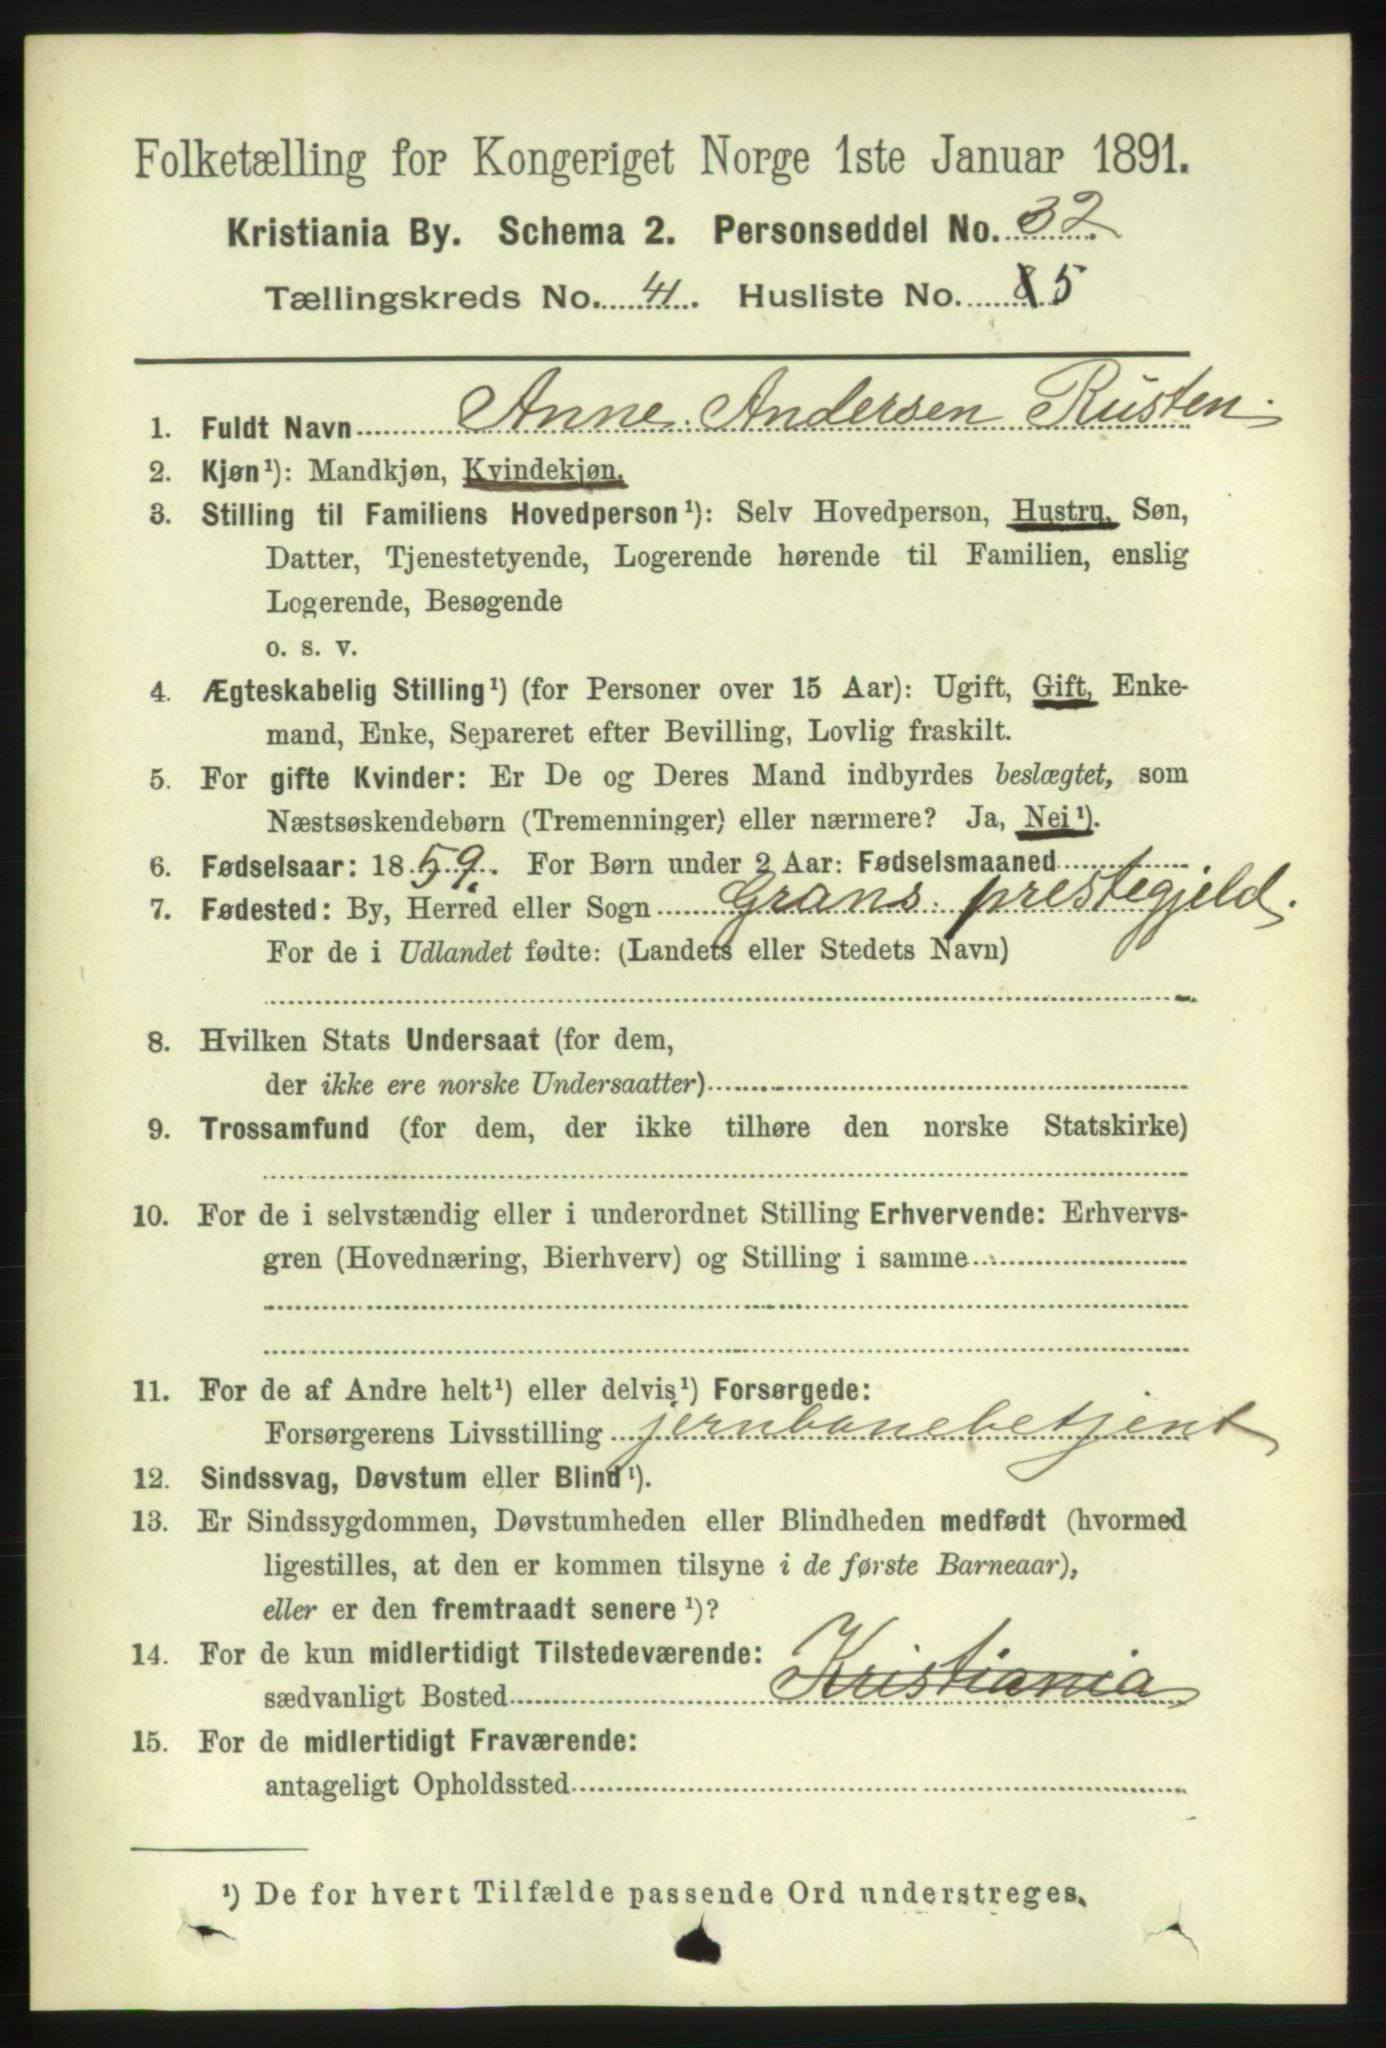 Folketælling for Kongeriget Norge 1ste Januar 1891.
Kristiania By. Schema 2. Personseddel No. 32
Tællingskreds No. 41. Husliste No. 8 5
1. Fuldt Navn Anne Andersen Rusten.
2. Kjøn¹): Mandkjøn, Kvindekjøn.
3. Stilling til Familiens Hovedperson¹): Selv Hovedperson, Hustru, Søn,
Datter, Tjenestetyende, Logerende hørende til Familien, enslig
Logerende, Besøgende
o. s. v.
4. Ægteskabelig Stilling¹) (for Personer over 15 Aar): Ugift, Gift, Enke-
mand, Enke, Separeret efter Bevilling, Lovlig fraskilt.
5. For gifte Kvinder: Er De og Deres Mand indbyrdes beslægtet, som
Næstsøskendebørn (Tremenninger) eller nærmere? Ja, Nei¹).
6. Fødselsaar: 1859. For Børn under 2 Aar: Fødselsmaaned
7. Fødested: By, Herred eller Sogn Grans prestegjeld.
For de i Udlandet fødte: (Landets eller Stedets Navn)
8. Hvilken Stats Undersaat (for dem,
der ikke ere norske Undersaatter)
9. Trossamfund (for dem, der ikke tilhøre den norske Statskirke)
10. For de i selvstændig eller i underordnet Stilling Erhvervende: Erhvervs-
gren (Hovednæring, Bierhverv) og Stilling i samme
11. For de af Andre helt¹) eller delvis¹) Forsørgede:
Forsørgerens Livsstilling jernbanebetjent
12. Sindssvag, Døvstum eller Blind¹).
13. Er Sindssygdommen, Døvstumheden eller Blindheden medfødt (hvormed
ligestilles, at den er kommen tilsyne i de første Barneaar),
eller er den fremtraadt senere¹)?
14. For de kun midlertidigt Tilstedeværende:
sædvanligt Bosted Kristiania
15. For de midlertidigt Fraværende:
antageligt Opholdssted
¹) De for hvert Tilfælde passende Ord understreges.